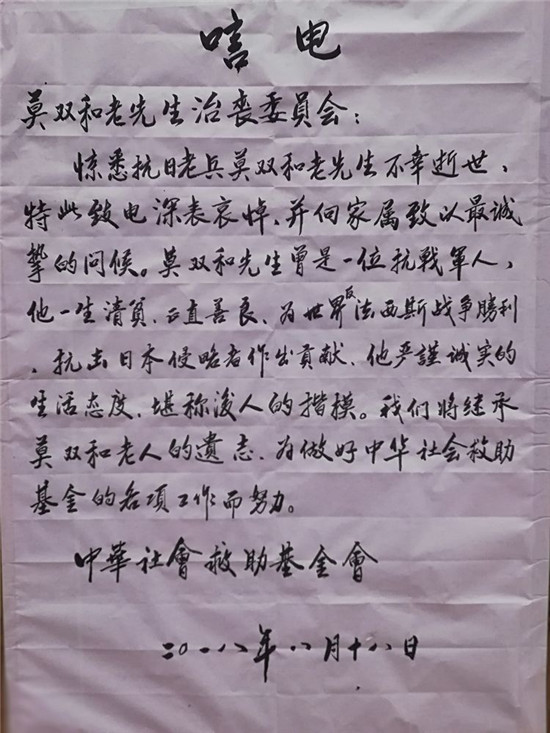 唁电
莫双和老先生治丧委員会：
惊悉抗日老兵莫双和老先生不幸逝世，
特此致电深表哀悼、并向家属致以最诚
挚的问候。莫双和先生曾是一位抗战軍人，
他一生清貧、正直善良、为世界反法西斯战争勝利
、抗击日本侵略者作出贡献、他严謹诚实的
生活态度、堪称後人的揩模。我们将继承
莫双和老人的遗志、为做好中华社会救助
基金的各项工作而努力。
中華社會救助基金會
二〇一八年八月十八日